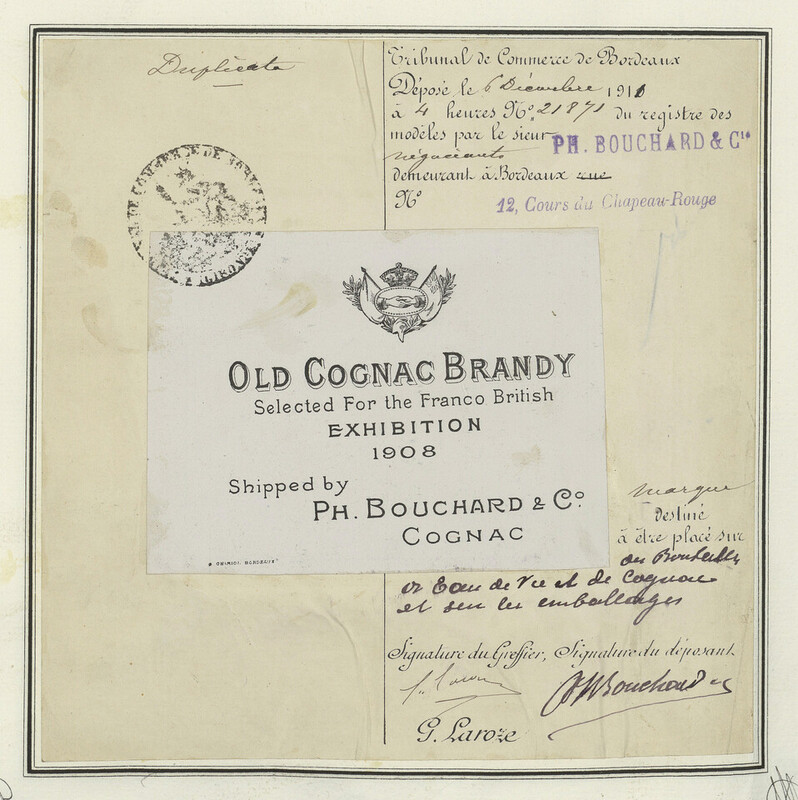 Duplicata
Tribunal de Commerce de Bordeaux
Déposé le 6 Décembre 1910
à 4 heures No. 21871 du registre des
modèles par le sieur PH. BOUCHARD & Cie
négociants
demeurant à Bordeaux rue
No 12, Cours du Chapeau-Rouge
DE COMMERCE DE BORDEAUX
GIRONDE
OLD COGNAC BRANDY
Selected For the Franco British
EXHIBITION
1908
Shipped by
PH. BOUCHARD & Co.
COGNAC
BORDEAUX
marque
destiné
à être placé sur
des Bouteilles
Eau de Vie et de Cognac
et sur les emballages
Signature du Greffier, Signature du déposant
Ph Bouchard
G. Laroze